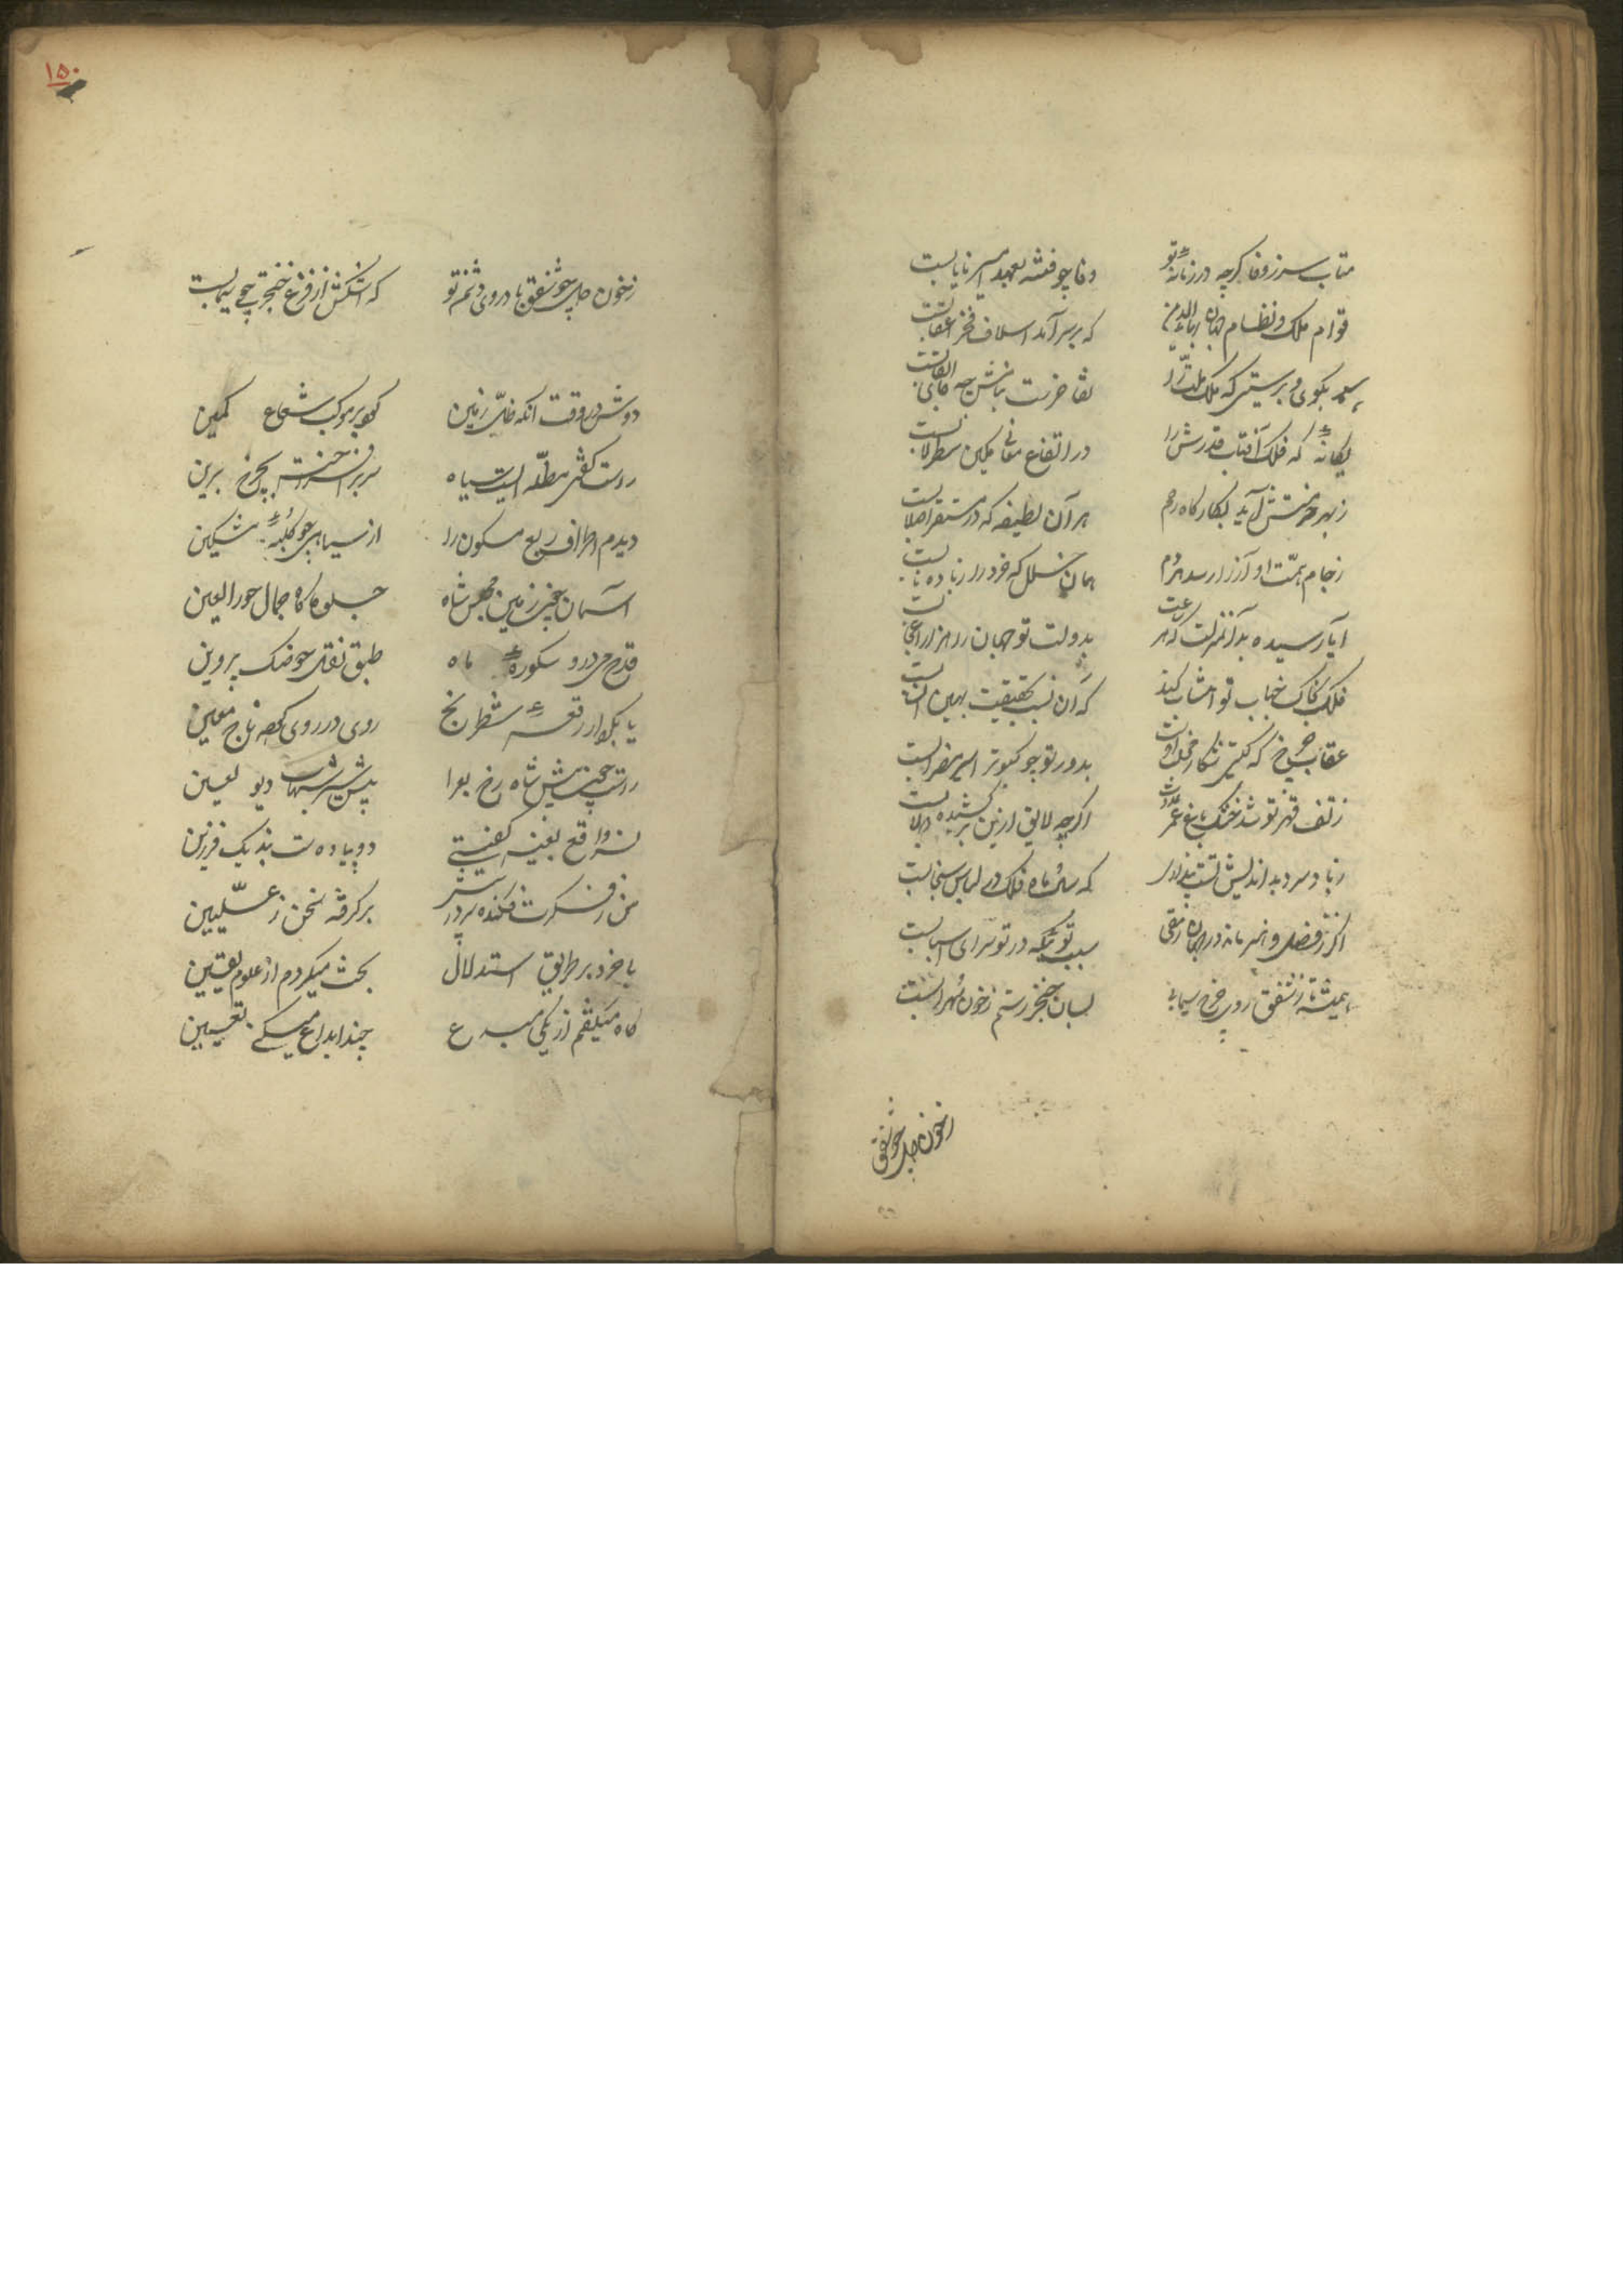 متاب سر ز وفا گرچه در زمانه تو وفا چو فتنه بعهد امیر نایابست
قوام ملک و نظام جهان بهاءالدین که بر سر آمد اسلاف و فخر اعقابست
بگوی و براستی که ملک ملت را تفاخرست بنامش چه جای القابست
یگانه که فلک آفتاب قدرش را در ارتفاع معانی کمین سطرلابست
ز بهر خدمتش آید بکارگاه رحم هر آن لطیفه که در مستقر اصلابست
ز جام همت او آز را رسد هر دم همان خلل که خرد را ز باده نابست
ایا رسیده بدان منزلت که هر ساعت بدولت تو جهان را هزار اعجابست
فلک بخاک جناب تو انتساب کند که آن نسب بحقیقت بهین انسابست
عقاب چرخ که گیتی شکار مخلب اوست بدور تو چو کبوتر اسیر مضرابست
ز تف قهر تو شد خشک باغ عمر عدوت اگرچه لایق ازین برکشیده دولابست
ز باد سرد بداندیش تست پنداری که سال و ماه فلک در لباس سنجابست
اگر ز فضل و هنر مانده در جهان رمقی سبب تویی که در تو سرای اسبابست
همیشه تا ز شفق روی چرخ سیمابی بسان خنجر رستم ز خون سهرابست
ز خون دل چو شفق
۱۵۰
ز خون دل چو شفق باد روی دشمن تو که اشکش از فزع خنجرت چو سیمابست
دوش در وقت آنکه ظل زمین کرد بر موکب شعاع کمین
راست گفتی مظله ایست سیاه سر برافراخته بچرخ برین
دیدم اطراف ربع مسکون را از سیاهی چو کلبه مسکین
آسمان چون زمین مجلس شاه جلوه گاه جمال حور العین
قدح می درو سکوره ماه طبق نقل خوشه پروین
یا بکردار رقعه شطرنج روی در روی کرده تاج معین
راست چون پیش شاه رخ بهوا پیش سیر شهاب دیو لعین
نسر واقع بعینه گفتی دو پیاده ست بند یک فرزین
من ز فکرت فکنده سر در پیش برگرفته سخن ز علیین
با خرد بر طریق استدلال بحث میکردم از علوم یقین
گاه میگفتم از یکی مبدع چند ابداع میکنی تعیین